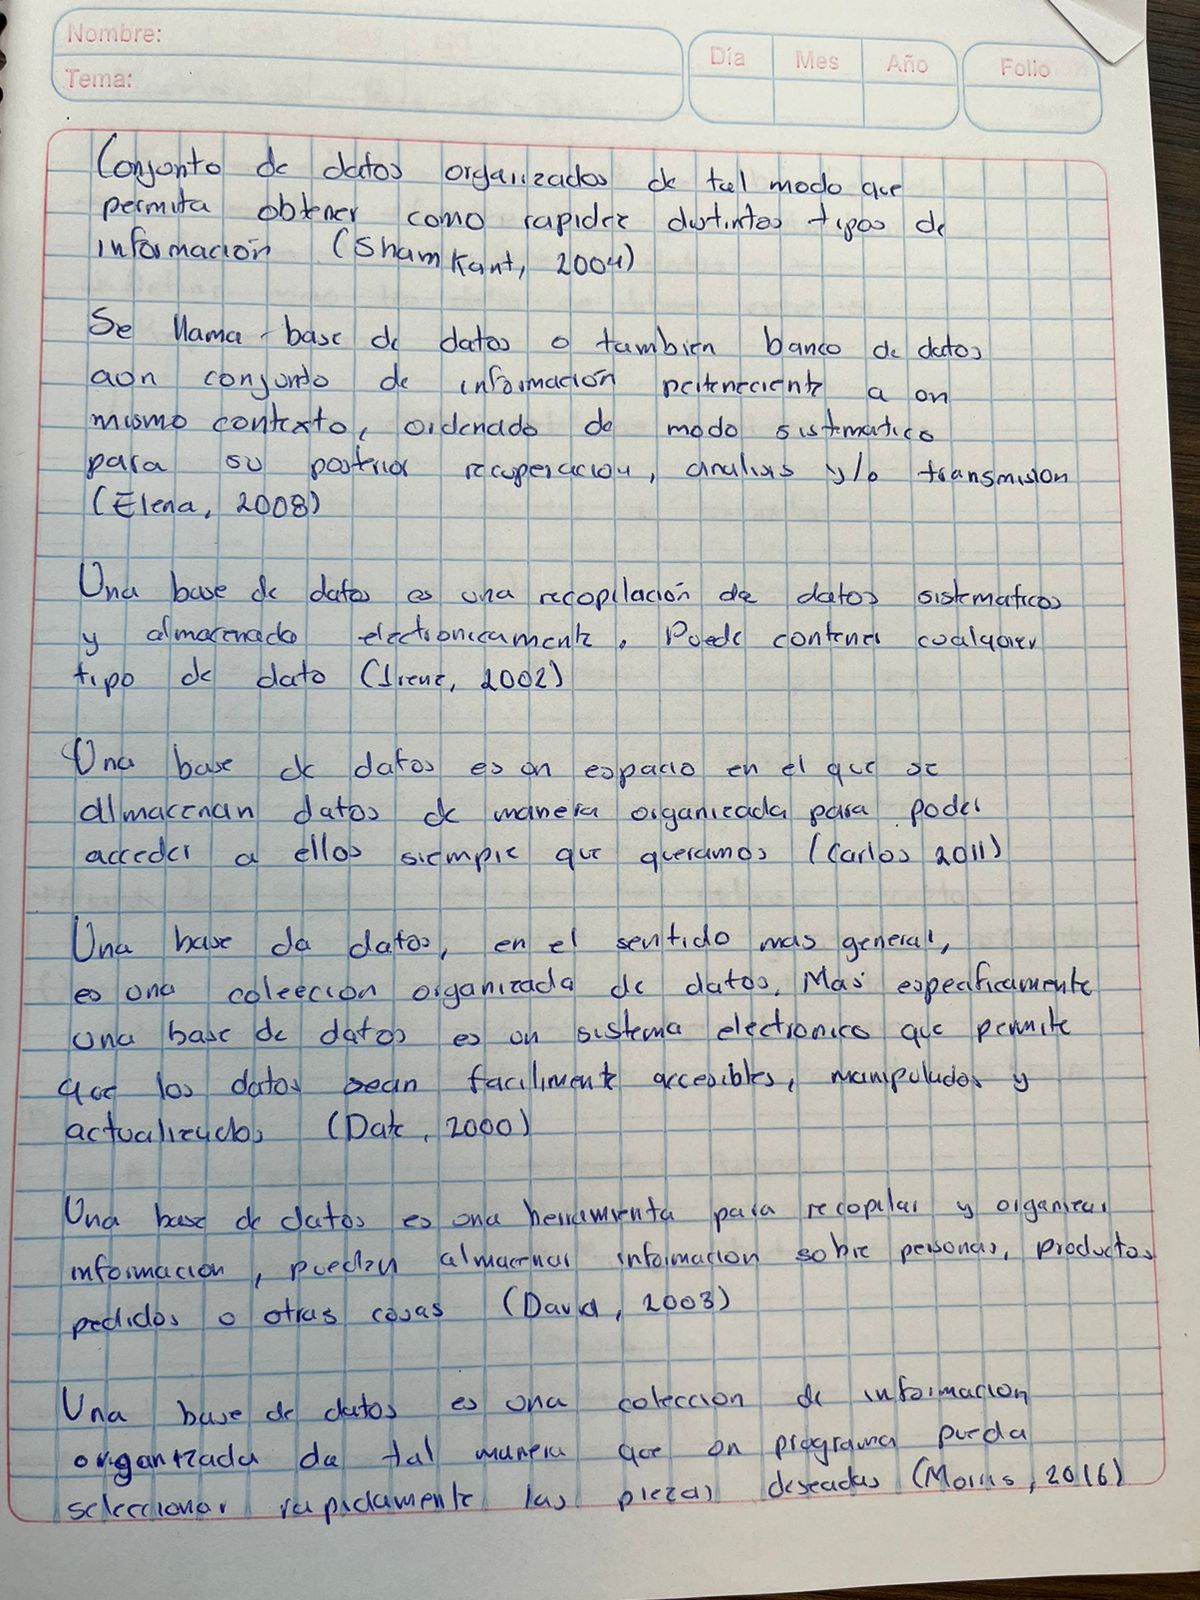 Nombre:
Tema:
Día Mes Año Folio
Conjonto de datos organizados de tal modo que
permita obtener como rapidez distintos tipos de
información (Sham Kant, 2004)
Se llama base de datos o tambien banco de datos
aon conjonto de información perteneciente a on
mismo contexto, ordenado de modo sistematico
para so posterior recuperacion, analisis y/o transmision
(Elena, 2008)
Una base de datos es una recopilación de datos sistematicos
y almacenado electronicamente. Puede contener coalquier
tipo de dato (Irene, 2002)
Una base de datos es on espacio en el que se
almacenan datos de manera organizada para poder
acceder a ellos siempre que queramos (Carlos 2011)
Una base da datos, en el sentido mas general,
es ona coleccion organizada de datos. Mas especificamente
una base de datos es on sistema electronico que permite
que los datos sean facilmente accesibles, manipulados y
actualizados (Date, 2000)
Una base de datos es ona herramienta para recopilar y organizar
informacion, pueden almacenar informacion sobre personas, productos
pedidos o otras cosas (David, 2003)
Una base de datos es ona coleccion de informacion
organizada da tal manera que on programa pueda
seleccionar rapidamente las piezas deseadas (Morris, 2016)